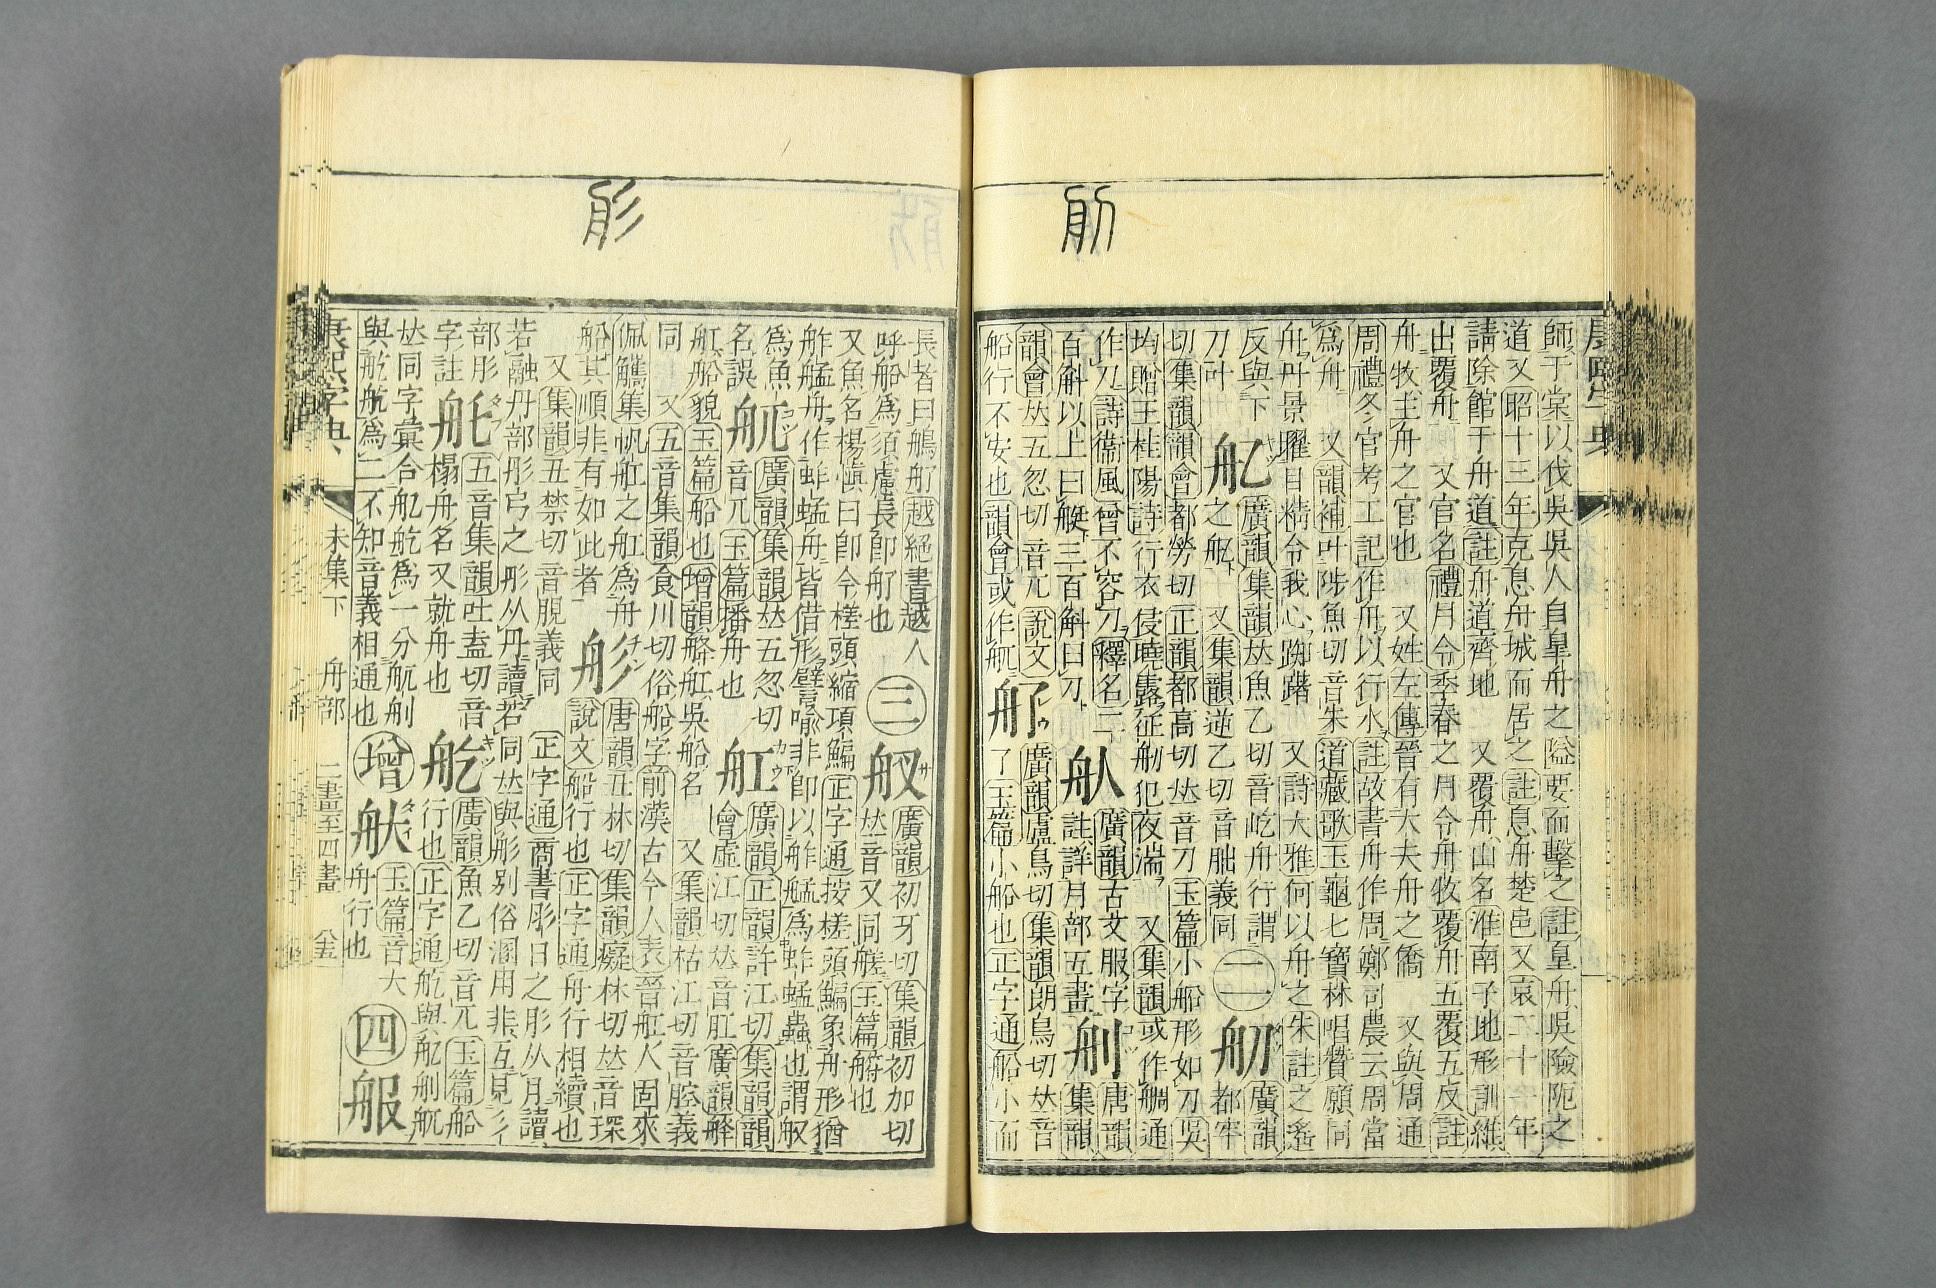 師于棠以伐吳吳人自皇舟之隘要而擊之註皇舟吳險阨之
道又昭十三年克息舟城而居之註息舟楚邑又哀二十一年
請除館于舟道註舟道齊地 又覆舟山名淮南子地形訓維
出覆舟 又官名禮月令季春之月令舟牧覆舟五覆五反註
舟牧主舟之官也 又姓左傳晉有大夫舟之僑 又與周通
周禮冬官考工記作舟以行水註故書舟作周鄭司農云周當
爲舟 又韻補叶陟魚切音朱道藏歌玉龜七寶林唱贊願同
舟丹景曜日精令我心踟躇 又詩大雅何以舟之朱註之遙
反與下
刀叶
舡
廣韻集韻𠀤魚乙切音屹舟行謂
之舡 又集韻逆乙切音朏義同
二
舠
廣韻
都牢
切集韻韻會都勞切正韻都高切𠀤音刀玉篇小船形如刀吳
均贈王桂陽詩行衣侵曉露征舠犯夜湍 又集韻或作鯛通
作刀詩衞風曾不容刀釋名二
百斛以上曰艇三百斛曰刀
舤
廣韻古文服字
註詳月部五畫
舢
唐韻
集韻
韻會𠀤五忽切音兀說文
船行不安也韻會或作舧
舠
廣韻盧鳥切集韻朗鳥切𠀤音
了玉篇小船也正字通船小而
長者曰鵃舠越絕書越人
呼船爲須慮長卽舠也
三
舣
廣韻初牙切集韻初加切
𠀤音叉同艖玉篇艀也
又魚名楊愼曰卽今槎頭縮項鯿正字通按槎頭鯿象舟形猶
舴艋舟作蚱蜢舟皆借形譬喻非卽以舴艋爲蚱蜢蟲也謂舣
爲魚
名誤
舧
廣韻集韻𠀤五忽切
音兀玉篇播舟也
舡
廣韻正韻許江切集韻韻
會虛江切𠀤音肛廣韻䑄
舡船貌玉篇船也增韻䑄舡吳船名 又集韻枯江切音腔義
同 又五音集韻食川切俗船字前漢古今人表晉舡人固來
佩觿集帆舡之舡爲舟
船其順非有如此者
舯
唐韻丑林切集韻癡林切𠀤音琛
說文船行也正字通舟行相續也
又集韻丑禁切音䚾義同 正字通商書肜日之肜从月讀
若融丹部彤弓之彤从丹讀若同𠀤與舯别俗溷用非互見彡
部肜
字註
舦
五音集韻吐盍切音
榻舟名又就舟也
舩
廣韻魚乙切音兀玉篇船
行也正字通舩與舡舠舧
𠀤同字彙合舡舩爲一分舧舠
與舩舤爲二不知音義相通也
增
舦
玉篇音大
舟行也
四
服
康熙字典 未集下 舟部 二畫至四畫 全